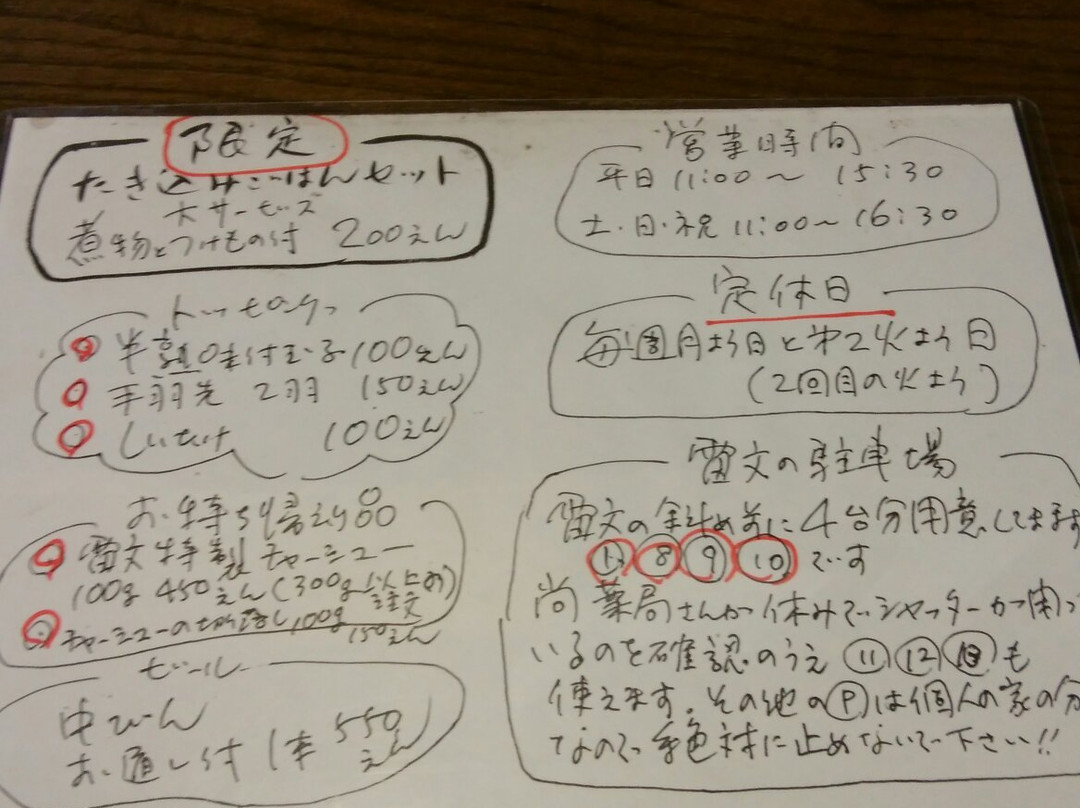 限定
たき込みごはんセット
大サービス
煮物とつけもの付 200えん
トッピング
半熟味付玉子100えん
手羽先 2羽 150えん
しいたけ 100えん
お持ち帰り品
雷文特製チャーシュー
100g 450えん(300g以上より注文)
チャーシューの切り落し100g
150えん
ビール
中びん
お通し付 1本 550えん
営業時間
平日 11:00〜 15:30
土・日・祝 11:00〜16:30
定休日
毎週月よう日と第2火よう日
(2回目の火よう)
雷文の駐車場
雷文の斜め前に4台分用意してます
① ⑧ ⑨ ⑩ です
尚 薬局さんが休みでシャッターが閉って
いるのを確認のうえ ⑪ ⑫ も
使えます。その他のⓅは個人の家の分
なので絶対に止めないで下さい!!